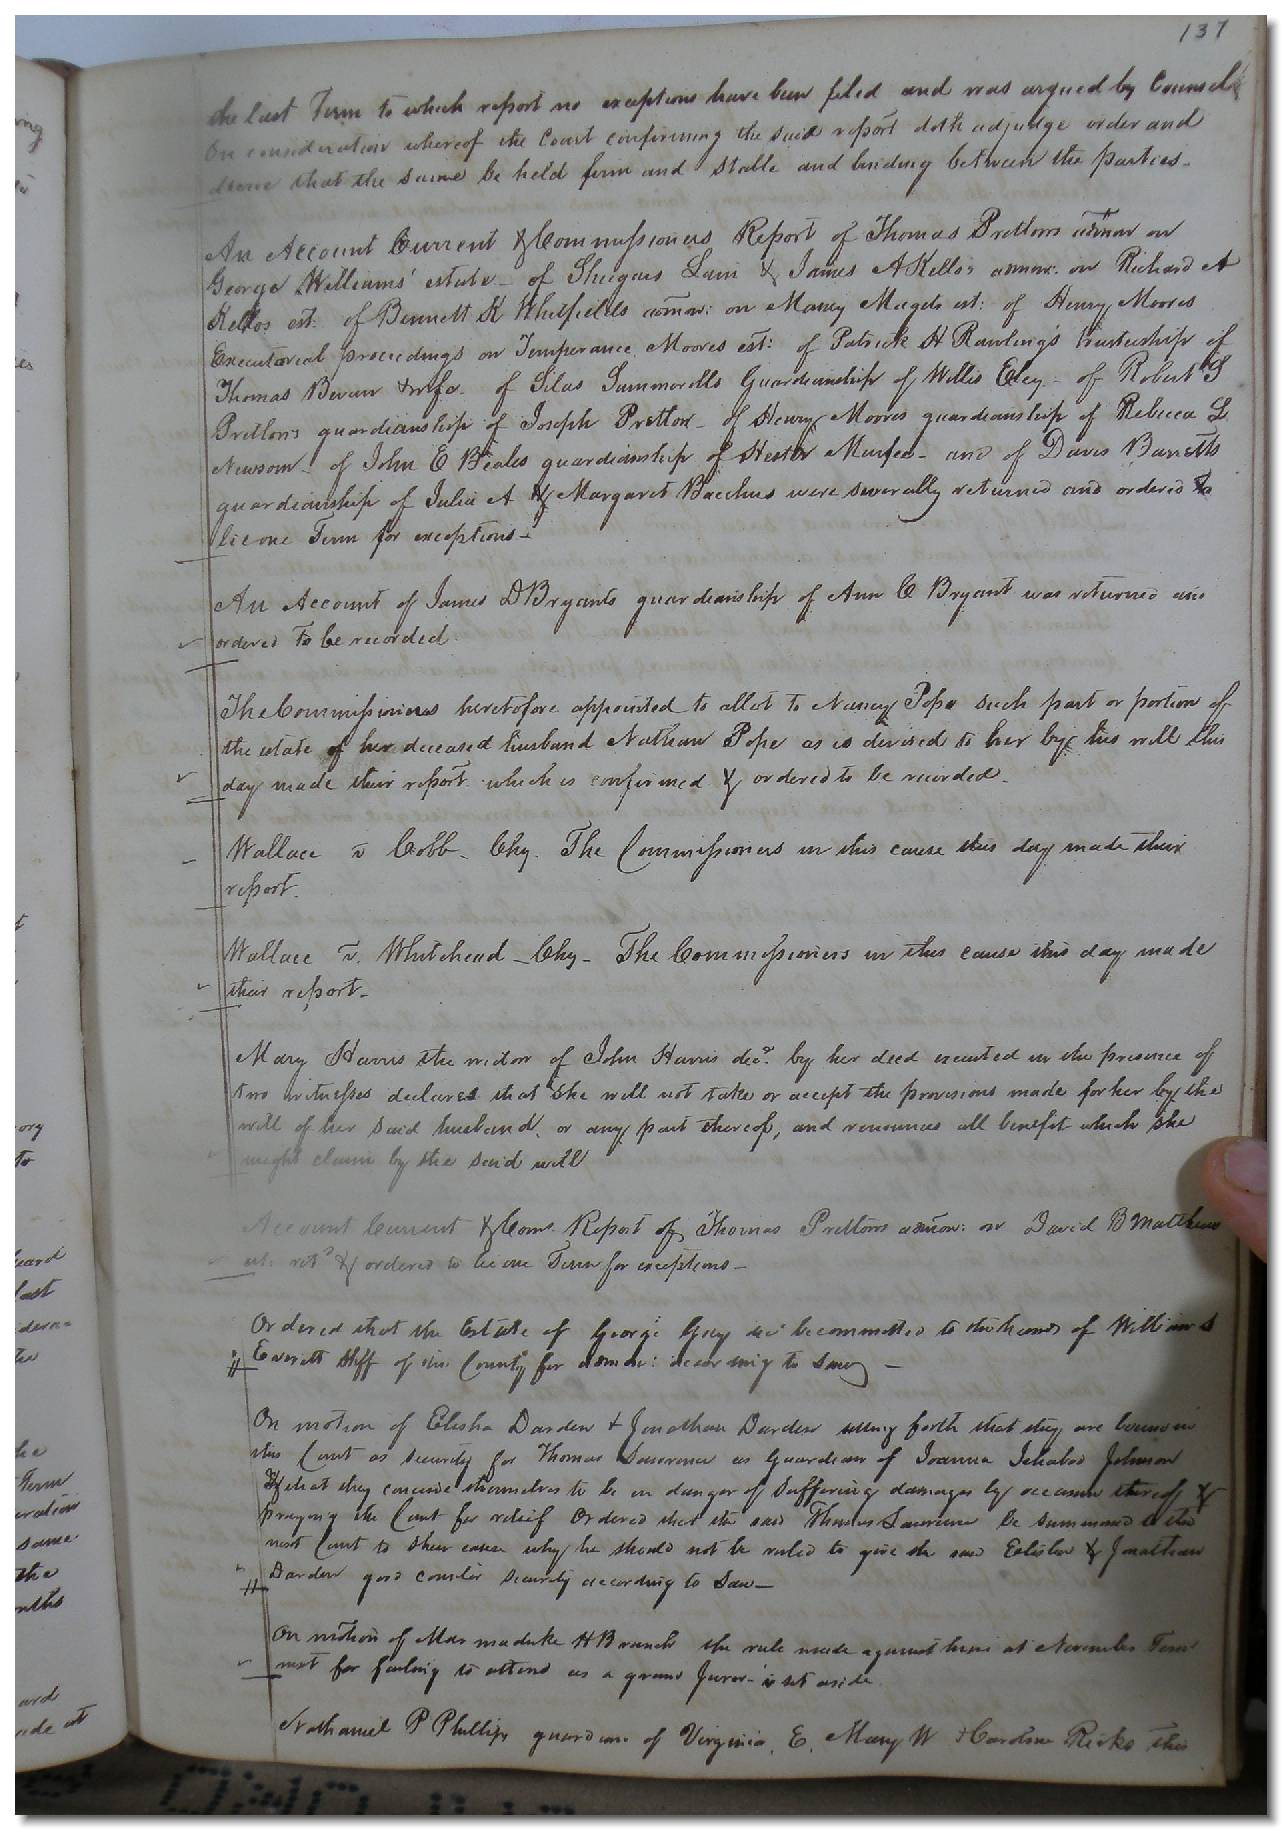 137
the last Term to which report no exceptions have been filed and was argued by Counsel
On consideration whereof the Court confirming the said report doth adjudge order and
decree that the same be held firm and stable and binding between the parties.
An Account Current & Commissioners Report of Thomas Pretlows admon on
George Williams' estate - of Lain & James A Kellos admon: on Richard A
Kellos est: of Bennett K Whitfields admon: on Maney est: of Henry Moores
Executorial proceedings on Temperance Moores est: of Patrick H Rawlings trusteeship of
Thomas Bevan & wife. of Silas Summerells Guardianship of Willis Eley - of Robert S
Pretlows guardianship of Joseph Pretlow - of Henry Moores guardianship of Rebecca L
Newsom - of John E Beales guardianship of Hester Murfee - and of Davis Barretts
guardianship of Julia A & Margaret Bacchus were severally returned and ordered to
lie one Term for exceptions -
An Account of James D Bryants guardianship of Ann C Bryant was returned and
ordered to be recorded
The Commissioners heretofore appointed to allot to Nancy Pope such part or portion of
the estate of her deceased husband Nathan Pope as is devised to her by his will this
day made their report which is confirmed & ordered to be recorded.
Wallace v Cobb. Chy. The Commissioners in this cause this day made their
report.
Wallace v. Whitehead - Chy - The Commissioners in this cause this day made
their report -
Mary Harris the widow of John Harris decd. by her deed executed in the presence of
two witnesses declares that she will not take or accept the provisions made for her by the
will of her said husband, or any part thereof, and renounces all benefit which she
might claim by the said will
Account Current & Coms. Report of Thomas Pretlows admon: on David B Matthews
est: retd & ordered to lie one Term for exceptions -
Ordered that the Estate of George Gray decd be committed to the hands of William S
Everett Shff of this County for admon: according to Law -
On motion of Elisha Darden & Jonathan Darden setting forth that they are bound in
this Court as security for Thomas Lawrence as Guardian of Joanna Johnson
& that they conceive themselves to be in danger of suffering damages by occasion thereof &
praying the Court for relief Ordered that the said Thomas Lawrence be summoned to the
next Court to shew cause why he should not be ruled to give the said Elisha & Jonathan
Darden good counter security according to Law -
On motion of Marmaduke H Branch the rule made against him at November Term
next for failing to attend as a grand Juror is set aside.
Nathaniel P Phillips guardian of Virginia. E. Mary W & Caroline Ricks this